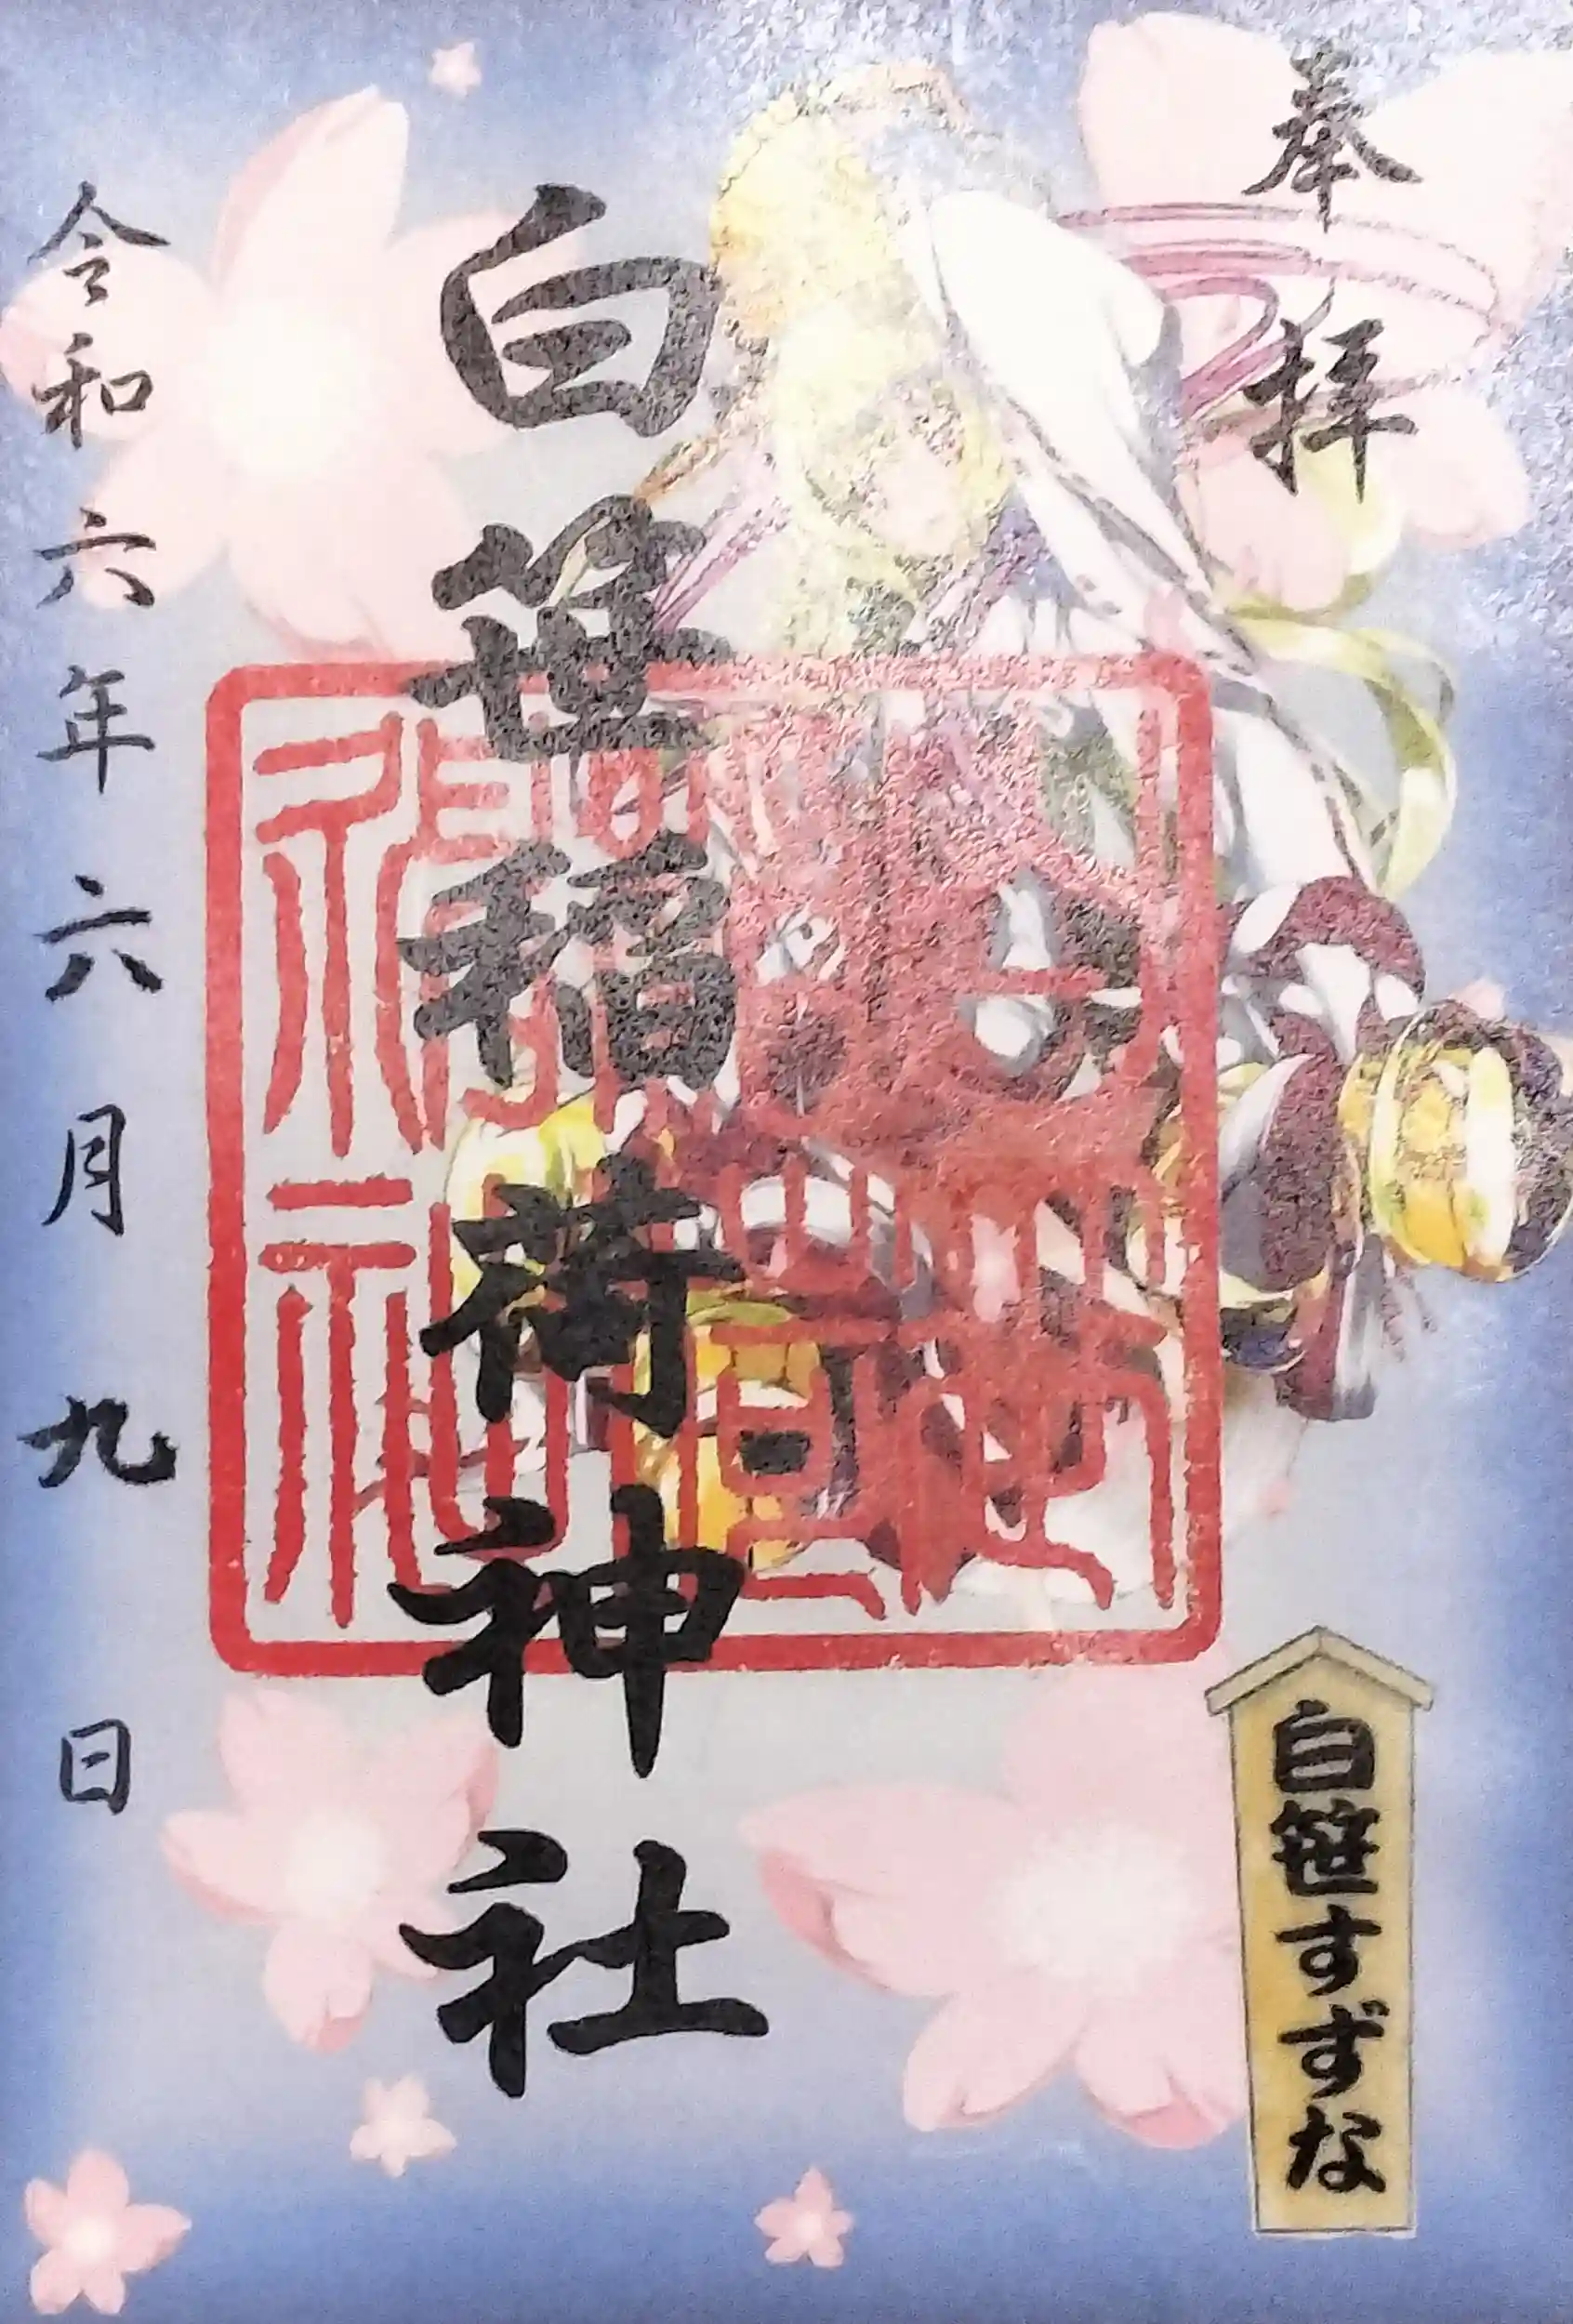 奉拝
白笹稲荷神社
令和六年六月九日
白笹すずな